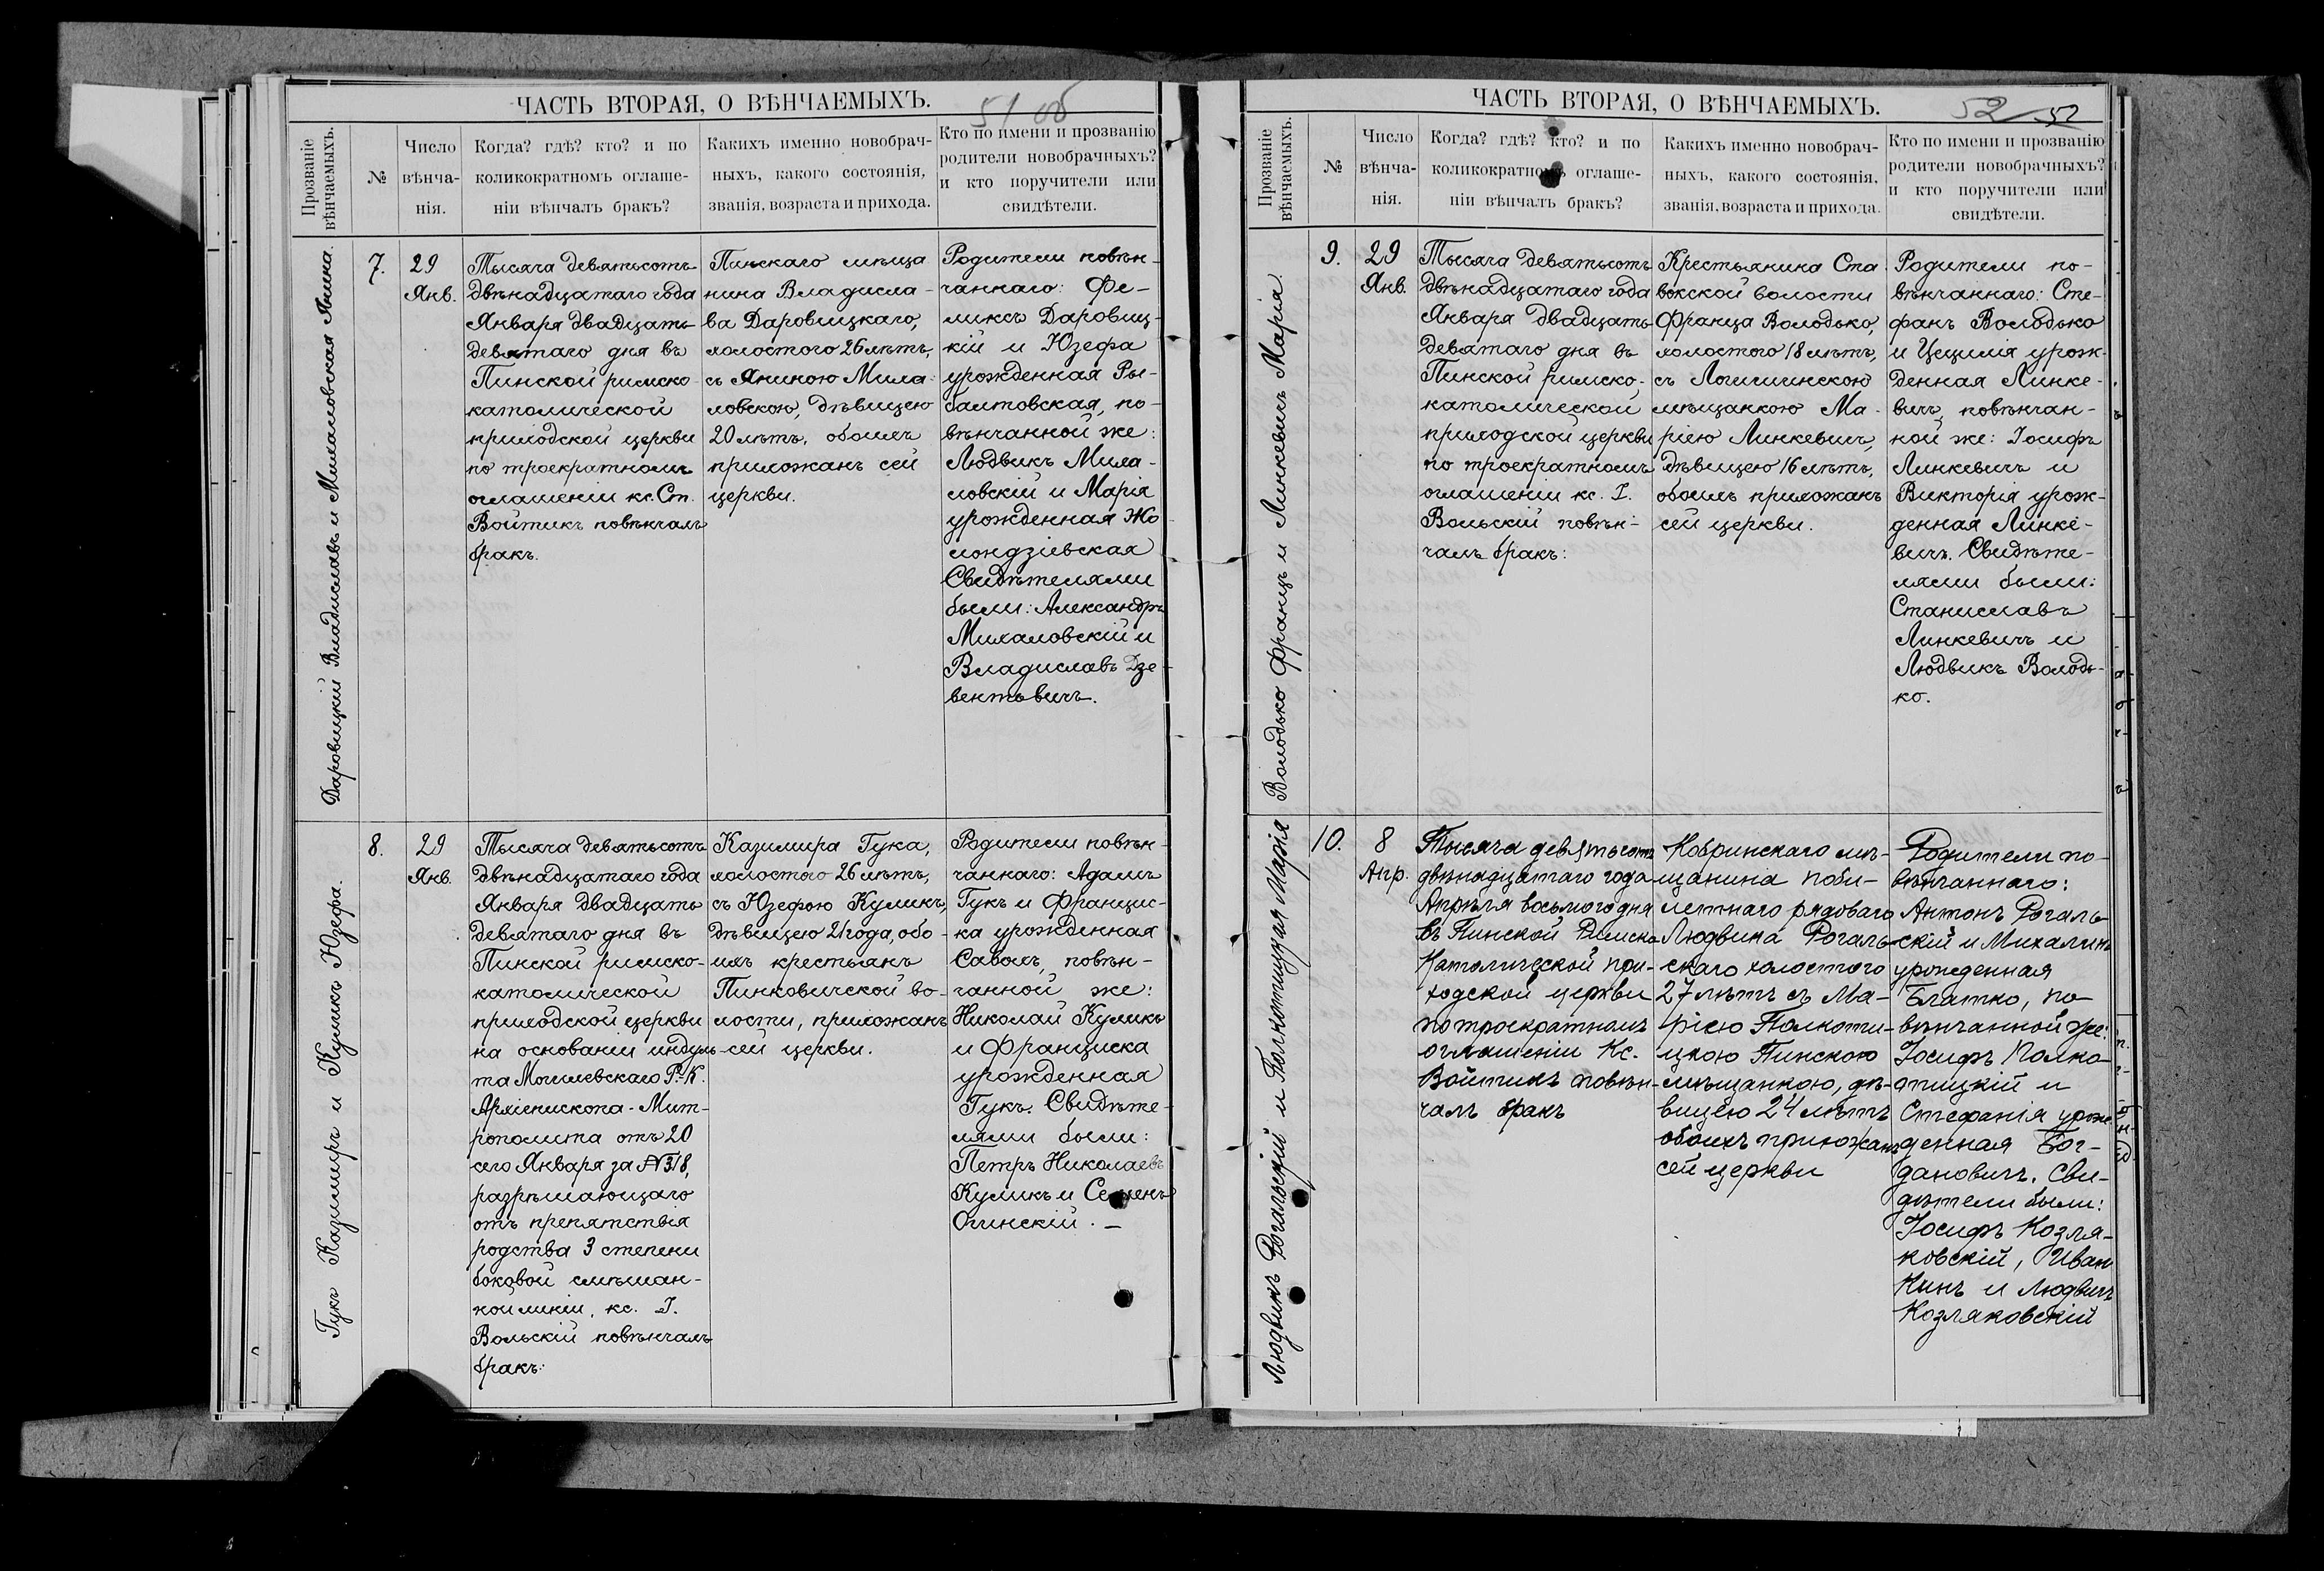 ЧАСТЬ ВТОРАЯ, О ВѢНЧАЕМЫХЪ.
51 об
Прозваніе
вѣнчаемыхъ.
№
Число
вѣнча-
нія.
Когда? гдѣ? кто? и по
коликократномъ оглаше-
ніи вѣнчалъ бракъ?
Какихъ именно новобрач-
ныхъ, какого состоянія,
званія, возраста и прихода.
Кто по имени и прозванію
родители новобрачныхъ?
и кто поручители или
свидѣтели.
Даровицкій Владиславъ и Михаловская Янина.
7.
29
Янв.
Тысяча девятьсотъ
двѣнадцатаго года
Января двадцать
девятаго дня въ
Пинской римско
католической
приходской церкви
по троекратномъ
оглашеніи кс. Ст.
Войтикъ повѣнчалъ
бракъ.
Пинскаго мѣща
нина Владисла-
ва Даровицкаго,
холостого 26 лѣтъ,
съ Яниною Миха-
ловскою, дѣвицею
20 лѣтъ, обоихъ
прихожанъ сей
церкви.
Родители повѣн-
чаннаго: Фе-
ликсъ Даровиц-
кій и Юзефа
урожденная Ры-
балтовская, по-
вѣнчанной же:
Людвикъ Миха-
ловскій и Марія
урожденная Жо
лондзіевская
Свидѣтелями
были: Александръ
Михаловскій и
Владиславъ Дзе-
вентовичъ.
Гукъ Казимиръ и Куликъ Юзефа.
8.
29
Янв.
Тысяча девятьсотъ
двѣнадцатаго года
Января двадцать
девятаго дня въ
Пинской римско-
католической
приходской церкви
на основаніи индуль-
та Могилевскаго Р.-К.
Архіепископа-Мит-
рополита отъ 20
сего Января за №318,
разрѣшающаго
отъ препятствія
родства 3 степени
боковой смѣшан-
ной линіи, кс. І.
Вольскій повѣнчалъ
бракъ:
Казимира Гука,
холостого 26 лѣтъ,
съ Юзефою Куликъ,
дѣвицею 21 года, обо-
ихъ крестьянъ
Пинковичской во-
лости, прихожанъ
сей церкви.
Родители повѣн-
чаннаго: Адамъ
Гукъ и Францис-
ка урожденная
Савохъ, повѣн-
чанной же:
Николай Куликъ
и Франциска
урожденная
Гукъ. Свидѣте-
лями были:
Петръ Николаевъ
Куликъ и Семенъ
Огинскій. —
ЧАСТЬ ВТОРАЯ, О ВѢНЧАЕМЫХЪ.
52 52
Прозваніе
вѣнчаемыхъ.
№
Число
вѣнча-
нія.
Когда? гдѣ? кто? и по
коликократномъ оглаше-
ніи вѣнчалъ бракъ?
Какихъ именно новобрач-
ныхъ, какого состоянія,
званія, возраста и прихода.
Кто по имени и прозванію
родители новобрачныхъ?
и кто поручители или
свидѣтели.
Володько Францъ и Линкевичъ Марія.
9.
29
Янв.
Тысяча девятьсотъ
двѣнадцатаго года
Января двадцать
девятаго дня въ
Пинской римско-
католической
приходской церкви
по троекратномъ
оглашеніи кс. І.
Вольскій повѣн-
чалъ бракъ:
Крестьянина Ста
вокской волости
Франца Володько,
холостого 18 лѣтъ,
съ Логишинскою
мѣщанкою Ма-
ріею Линкевичъ,
дѣвицею 16 лѣтъ,
обоихъ прихожанъ
сей церкви.
Родители по-
вѣнчаннаго: Сте-
фанъ Володько
и Цецилія урож-
денная Линке-
вичъ, повѣнчан-
ной же: Іосифъ
Линкевичъ и
Викторія урож-
денная Линке-
вичъ. Свидѣте-
лями были:
Станиславъ
Линкевичъ и
Людвикъ Володь-
ко.
Людвикъ Рогальскій и Полкотицкая Марія
10.
8
Апр.
Тысяча девятьсотъ
двѣнадцатаго года
Апрѣля восьмого дня
въ Пинской Римско
Католической при-
ходской церкви
по троекратномъ
оглашеніи Кс.
Войтикъ повѣн-
чалъ бракъ
Кобринскаго мѣ-
щанина поби-
летнаго рядоваго
Людвика Рогаль-
скаго холостого
27 лѣтъ съ Ма-
ріею Полкоти-
цкою Пинскою
мѣщанкою, дѣ-
вицею 24 лѣтъ
обоихъ прихожанъ
сей церкви
Родители по-
вѣнчаннаго:
Антонъ Рогаль-
скій и Михалина
урожденная
Блатко, по-
вѣнчанной же:
Іосифъ Полко-
тицкій и
Стефанія урож-
денная Бог-
дановичъ. Сви-
дѣтели были:
Іосифъ Козля-
ковскій, Иван
Кинъ и Людвигъ
Козляковскій